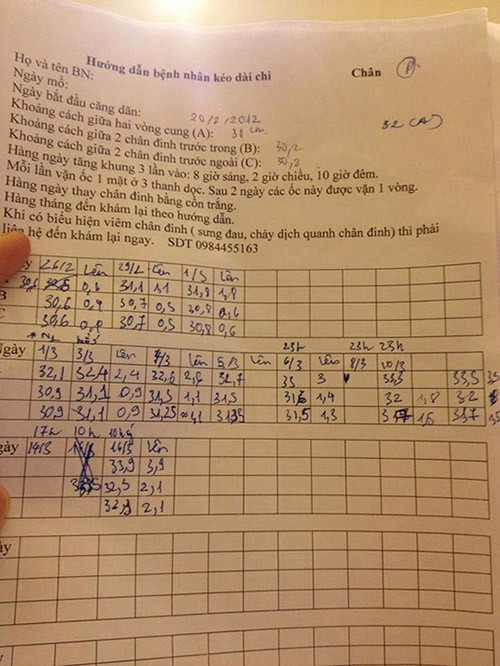 Hướng dẫn bệnh nhân kéo dài chi Chân P
Họ và tên BN:
Ngày mổ:
Ngày bắt đầu căng dãn: 20/2/2012
Khoảng cách giữa hai vòng cung (A): 30 cm 32 (A)
Khoảng cách giữa 2 chân đinh trước trong (B): 30,2
Khoảng cách giữa 2 chân đinh trước ngoài (C): 30,2
Hàng ngày tăng khung 3 lần vào: 8 giờ sáng, 2 giờ chiều, 10 giờ đêm.
Mỗi lần vặn ốc 1 mặt ở 3 thanh dọc. Sau 2 ngày các ốc này được vặn 1 vòng.
Hàng ngày thay chân đinh bằng cồn trắng.
Hàng tháng đến khám lại theo hướng dẫn.
Khi có biểu hiện viêm chân đinh ( sưng đau, chảy dịch quanh chân đinh) thì phải
liên hệ đến khám lại ngay. SDT 0984455163
26/2 Lên 29/2 Lên 1/3 Lên
30,6 0,6 31,1 1,1 31,8 1,8
B 30,6 0,4 30,7 0,5 30,8 0,6
C 30,6 0,8 30,7 0,5 30,8 0,6
23h 23h 23h
Ngày 1/3 3/3 Lên 4/3 Lên 5/3 Lên 6/3 Lên 8/3 10/3
32,1 32,4 2,4 32,6 2,6 32,7 33 3 33,5 33,5
30,9 31,1 0,9 31,3 1,1 31,5 31,6 1,4 32 1,8 32
30,9 31,1 0,9 31,25 31,35 31,5 1,3 1,5 31,7
17h 10h
14/3 16/3 Lên
33,9 3,9
32,5 2,1
32,3 2,1